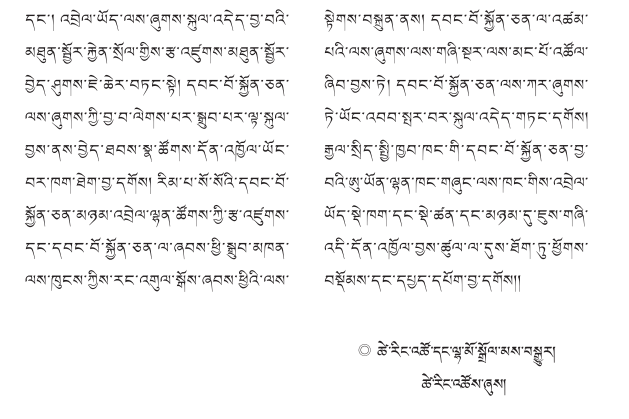 དང་། འབྲེལ་ཡོད་ལས་ཞུགས་སྐུལ་འདེད་བྱ་བའི་
མཐུན་སྦྱོར་རྐྱེན་སྲོལ་གྱིས་རྩ་འཛུགས་མཐུན་སྦྱོར་
བྱེད་ཤུགས་ཇེ་ཆེར་བཏང་སྟེ། དབང་པོ་སྐྱོན་ཅན་
ལས་ཞུགས་ཀྱི་བྱ་བ་ལེགས་པར་སྒྲུབ་པར་ལྟ་སྐུལ་
བྱས་ནས་བྱེད་ཐབས་སྣ་ཚོགས་དོན་འཁྱོལ་ཡོང་
བར་ཁག་ཐེག་བྱ་དགོས། རིམ་པ་སོ་སོའི་དབང་པོ་
སྐྱོན་ཅན་མཉམ་འབྲེལ་ལྷན་ཚོགས་ཀྱི་རྩ་འཛུགས་
དང་དབང་པོ་སྐྱོན་ཅན་ལ་ཞབས་ཕྱི་སྒྲུབ་མཁན་
ལས་ཁུངས་ཀྱིས་རང་འགུལ་སྒོས་ཞབས་ཕྱིའི་ལས་
སྟེགས་བསྐྲུན་ནས། དབང་པོ་སྐྱོན་ཅན་ལ་འཚམ་
པའི་ལས་ཞུགས་ལས་གཞི་སྔར་ལས་མང་པོ་འཚོལ་
ཞིབ་བྱས་ཏེ། དབང་པོ་སྐྱོན་ཅན་ལས་ཀར་ཞུགས་
ཏེ་ཡོང་འབབ་སྤར་བར་སྐུལ་འདེད་གཏང་དགོས།
རྒྱལ་སྲིད་སྤྱི་ཁྱབ་ཁང་གི་དབང་པོ་སྐྱོན་ཅན་བྱ་
བའི་ཨུ་ཡོན་ལྷན་ཁང་གཞུང་ལས་ཁང་གིས་འབྲེལ་
ཡོད་སྡེ་ཁག་དང་སྡེ་ཚན་དང་མཉམ་དུ་ཇུས་གཞི་
འདི་དོན་འཁྱོལ་བྱས་ཚུལ་ལ་དུས་ཐོག་ཏུ་ཕྱོགས་
བསྡོམས་དང་དཔྱད་དཔོག་བྱ་དགོས།།
◎ ཚེ་རིང་འཚོ་དང་ལྷ་མོ་སྒྲོལ་མས་བསྒྱུར།
ཚེ་རིང་འཚོས་ཞུས།